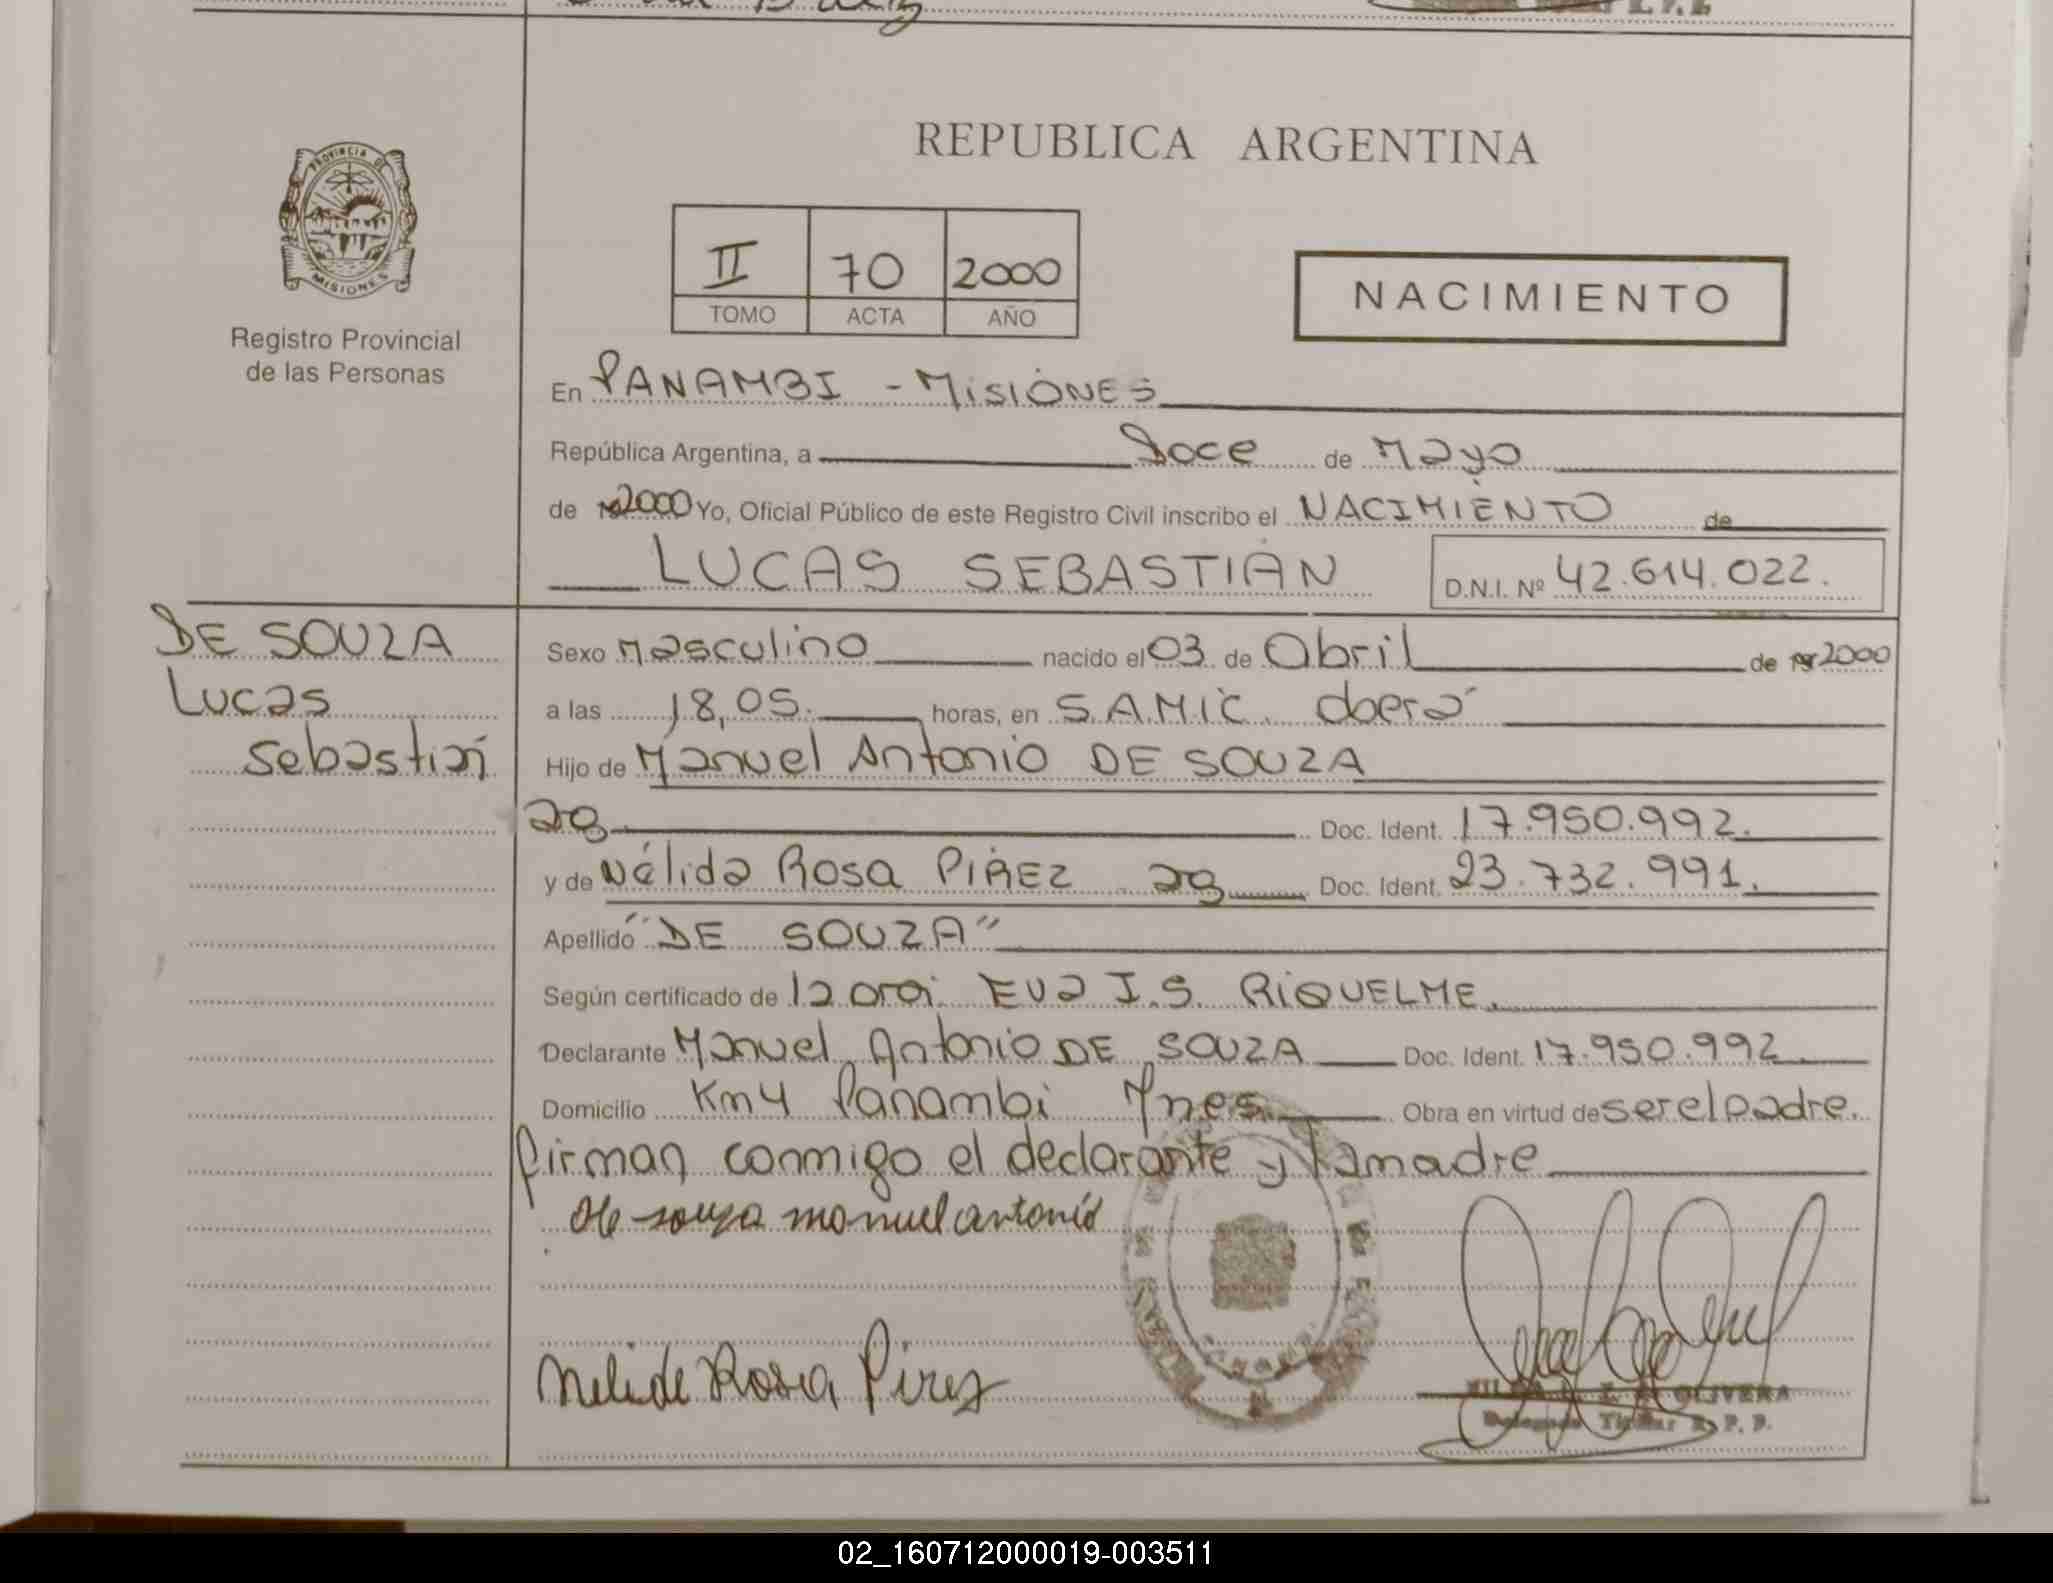 PROVINCIA DE
MISIONES
Registro Provincial
de las Personas
REPUBLICA ARGENTINA
II 70 2000
TOMO ACTA AÑO
NACIMIENTO
En PANAMBI - MISIONES
República Argentina, a Doce de Mayo
de 2000 Yo, Oficial Público de este Registro Civil inscribo el NACIMIENTO de
LUCAS SEBASTIÁN D.N.I. Nº 42.614.022.
DE SOUZA
Lucas
Sebastián
Sexo Masculino nacido el 03 de Abril de 2000
a las 18,05. horas, en S.A.M.I.C. Oberá
Hijo de Manuel Antonio DE SOUZA
Doc. Ident. 17.950.992.
y de Nélida Rosa PIREZ Doc. Ident. 23.732.991.
Apellido "DE SOUZA"
Según certificado de EVA I.S. RIQUELME.
Declarante Manuel Antonio DE SOUZA Doc. Ident. 17.950.992.
Domicilio Km 4 Panambi Mnes. Obra en virtud de ser el padre.
firman conmigo el declarante y la madre
de souza manuel antonio
Nelide Rosa Pirez
OLIVERA
Titular R. P. P.
02_160712000019-003511